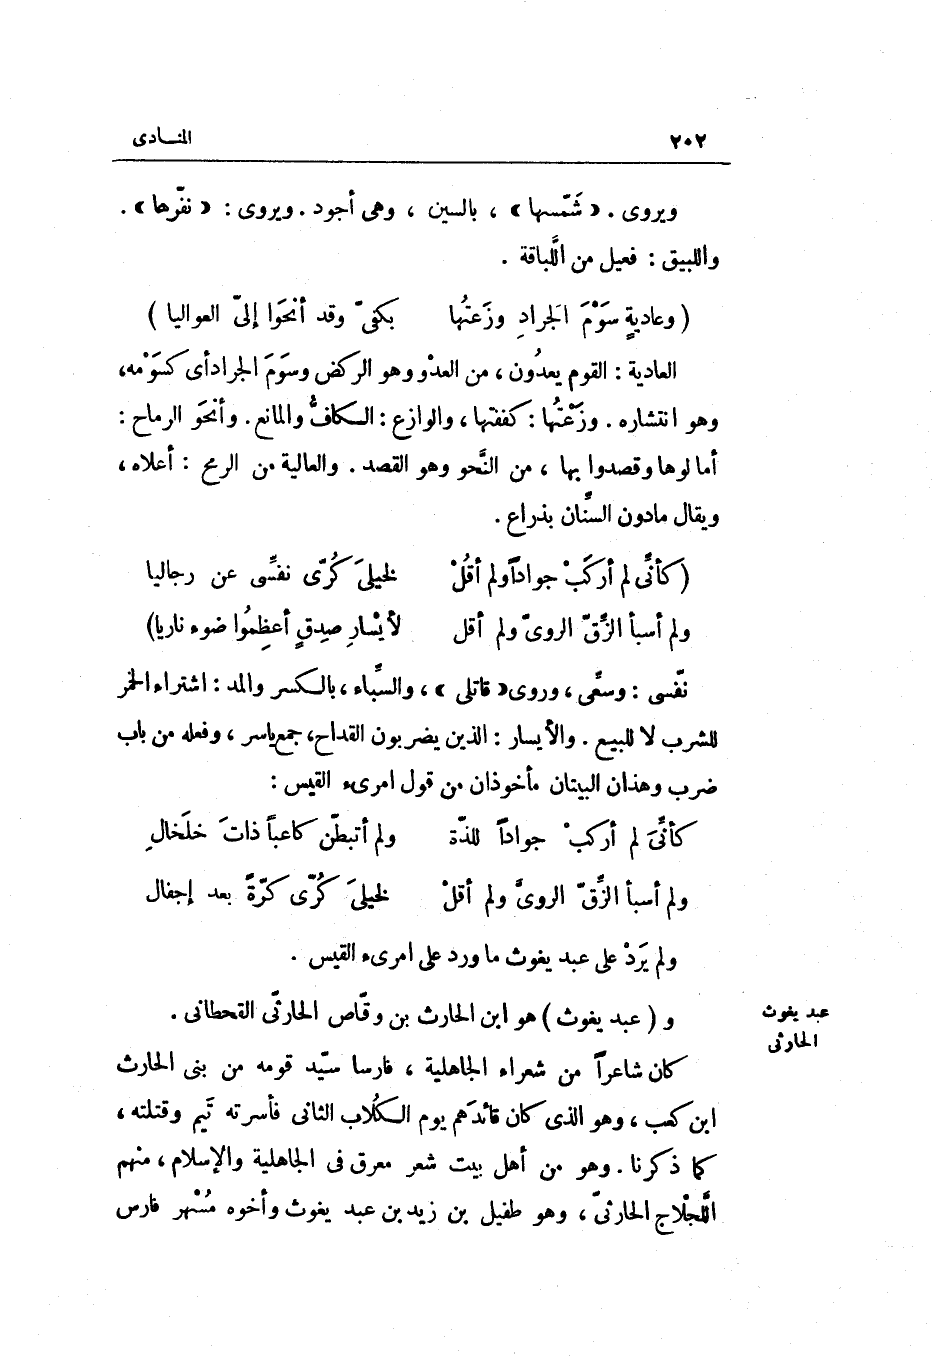 ٢٠٢ المنـادى
ويروى . « شَمّسها » ، بالسين ، وهى أجود . ويروى : « نفّرها » .
واللبيق : فعيل من اللَّباقة .
( وعاديةٍ سَوْمَ الجرادِ وزَعتُها بكفىّ وقد أنحَوا إلىّ العواليا )
العادية : القوم يعدُون ، من العدْو وهو الركض وسَومَ الجراد أى كسَوْمه،
وهو انتشاره . وزَعْتُها : كففتها ، والوازع : الـكافُّ والمانع . وأنحَو الرماح :
أمالوها وقصدوا بها ، من النَّحو وهو القصد . والعالية من الرمح : أعلاه ،
ويقال مادون السِّنان بذراع .
( كأنِّى لم أركَبْ جواداً ولم أقُلْ لخيلىَ كُرّى نفِّسى عن رجاليا
ولم أسبأ الزِّقّ الروىّ ولم أقل لأيْسارِ صِدقٍ أعظِمُوا ضوء ناريا)
نفّسى : وسعِّى ، وروى « قاتلى » ، والسِّباء ، بالـكسر والمد : اشتراء الخمر
للشرب لا للبيع . والأيسار : الذين يضربون القداح، جمع ياسر ، وفعله من باب
ضرب وهذان البيتان مأخوذان من قول امرىء القيس :
كأنِّىَ لم أركبْ جواداً للذّة ولم أتبطّن كاعباً ذاتَ خلَخالِ
ولم أسبأ الزِّقّ الروىَّ ولم أقلْ لخيلىَ كُرّى كرّةً بعد إجفال
ولم يَرَدْ على عبد يغوث ما ورد على امرىء القيس .
و ( عبد يغوث ) هو ابن الحارث بن وقّاص الحارثّى القحطانى .
عبد يغوث
الحارثى
كان شاعراً من شعراء الجاهلية ، فارسا سيّد قومه من بنى الحارث
ابن كعب ، وهو الذى كان قائدَهم يوم الـكُلاب الثانى فأسرته تَيم وقتلته ،
كما ذكرنا . وهو من أهل بيت شعر معرق فى الجاهلية والإسلام ، منهم
اللَّجْلاج الحارثىّ ، وهو طفيل بن زيد بن عبد يغوث وأخوه مُسْهر فارس